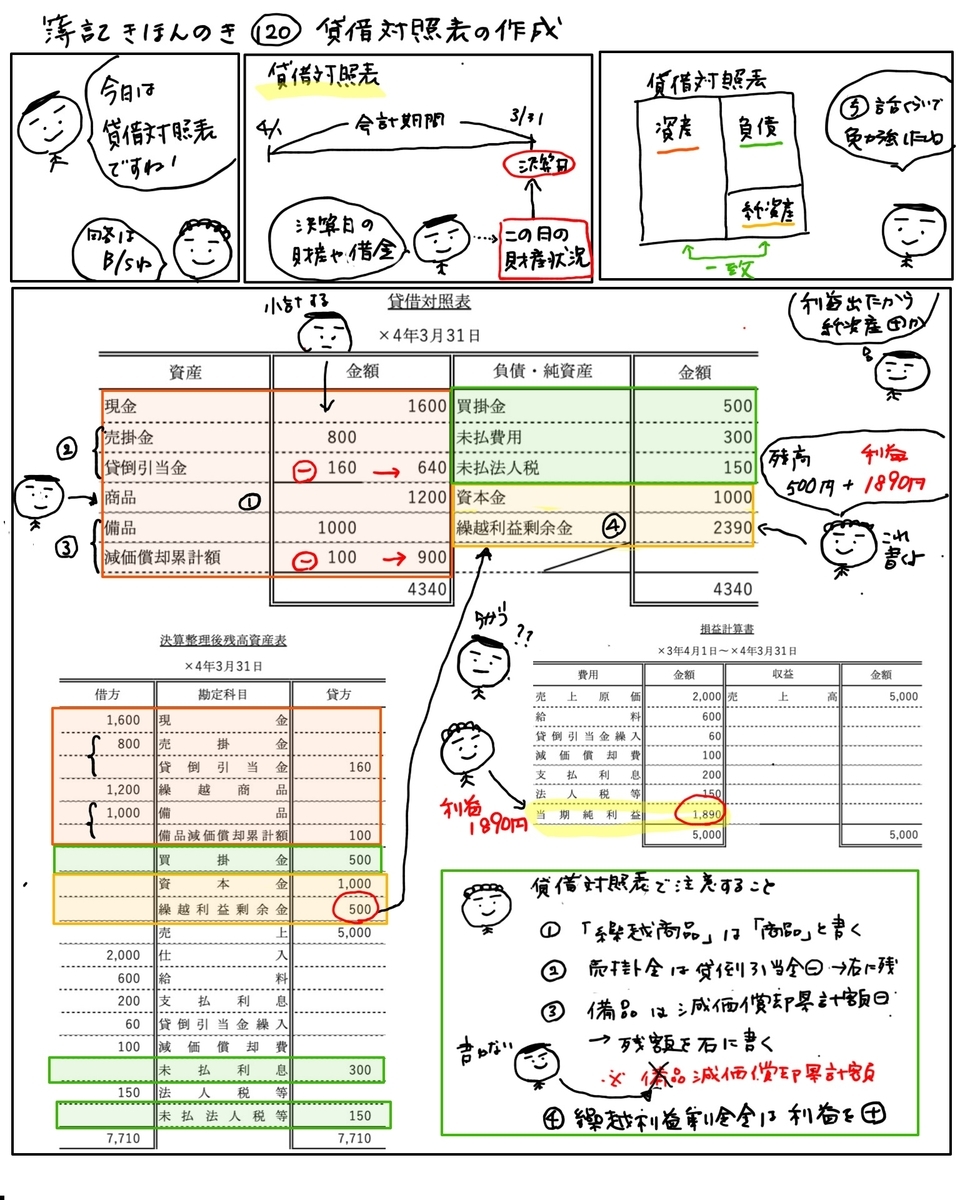 簿記きほんのき 120 貸借対照表の作成
今日は
貸借対照表
ですね！
回答は
B/Sね
貸借対照表
4/1 会計期間 3/31
決算日
決算日の
財産や借金
この日の
財産状況
貸借対照表
資産 負債
純資産
一致
⑤話くらいで
免か強したね
小計する
貸借対照表
×4年3月31日
利益出たから
純資産⊕か
資産 金額 負債・純資産 金額
現金 1600 買掛金 500
② 売掛金 800 未払費用 300
貸倒引当金 ㊀ 160 → 640 未払法人税 150
商品 ① 1200 資本金 1000
③ 備品 1000 繰越利益剰余金 ④ 2390
減価償却累計額 ㊀ 100 → 900
4340 4340
残高 利益
500円 + 1890円
これ
書くよ
決算整理後残高資産表
×4年3月31日
借方 勘定科目 貸方
1,600 現金
800 売掛金
貸倒引当金 160
1,200 繰越商品
1,000 備品
備品減価償却累計額 100
買掛金 500
資本金 1,000
繰越利益剰余金 500
売上 5,000
2,000 仕入
600 給料
200 支払利息
60 貸倒引当金繰入
100 減価償却費
未払利息 300
150 法人税等
未払法人税等 150
7,710 7,710
??
利益
1890円
損益計算書
×3年4月1日～×4年3月31日
費用 金額 収益 金額
売上原価 2,000 売上高 5,000
給料 600
貸倒引当金繰入 60
減価償却費 100
支払利息 200
法人税等 150
当期純利益 1,890
5,000 5,000
貸借対照表で注意すること
① 「繰越商品」は「商品」と書く
② 売掛金は貸倒引当金⊖→右に残
③ 備品は減価償却累計額⊖
→ 残額を右に書く
書かない
※ 備品減価償却累計額
④ 繰越利益剰余金は利益を⊕